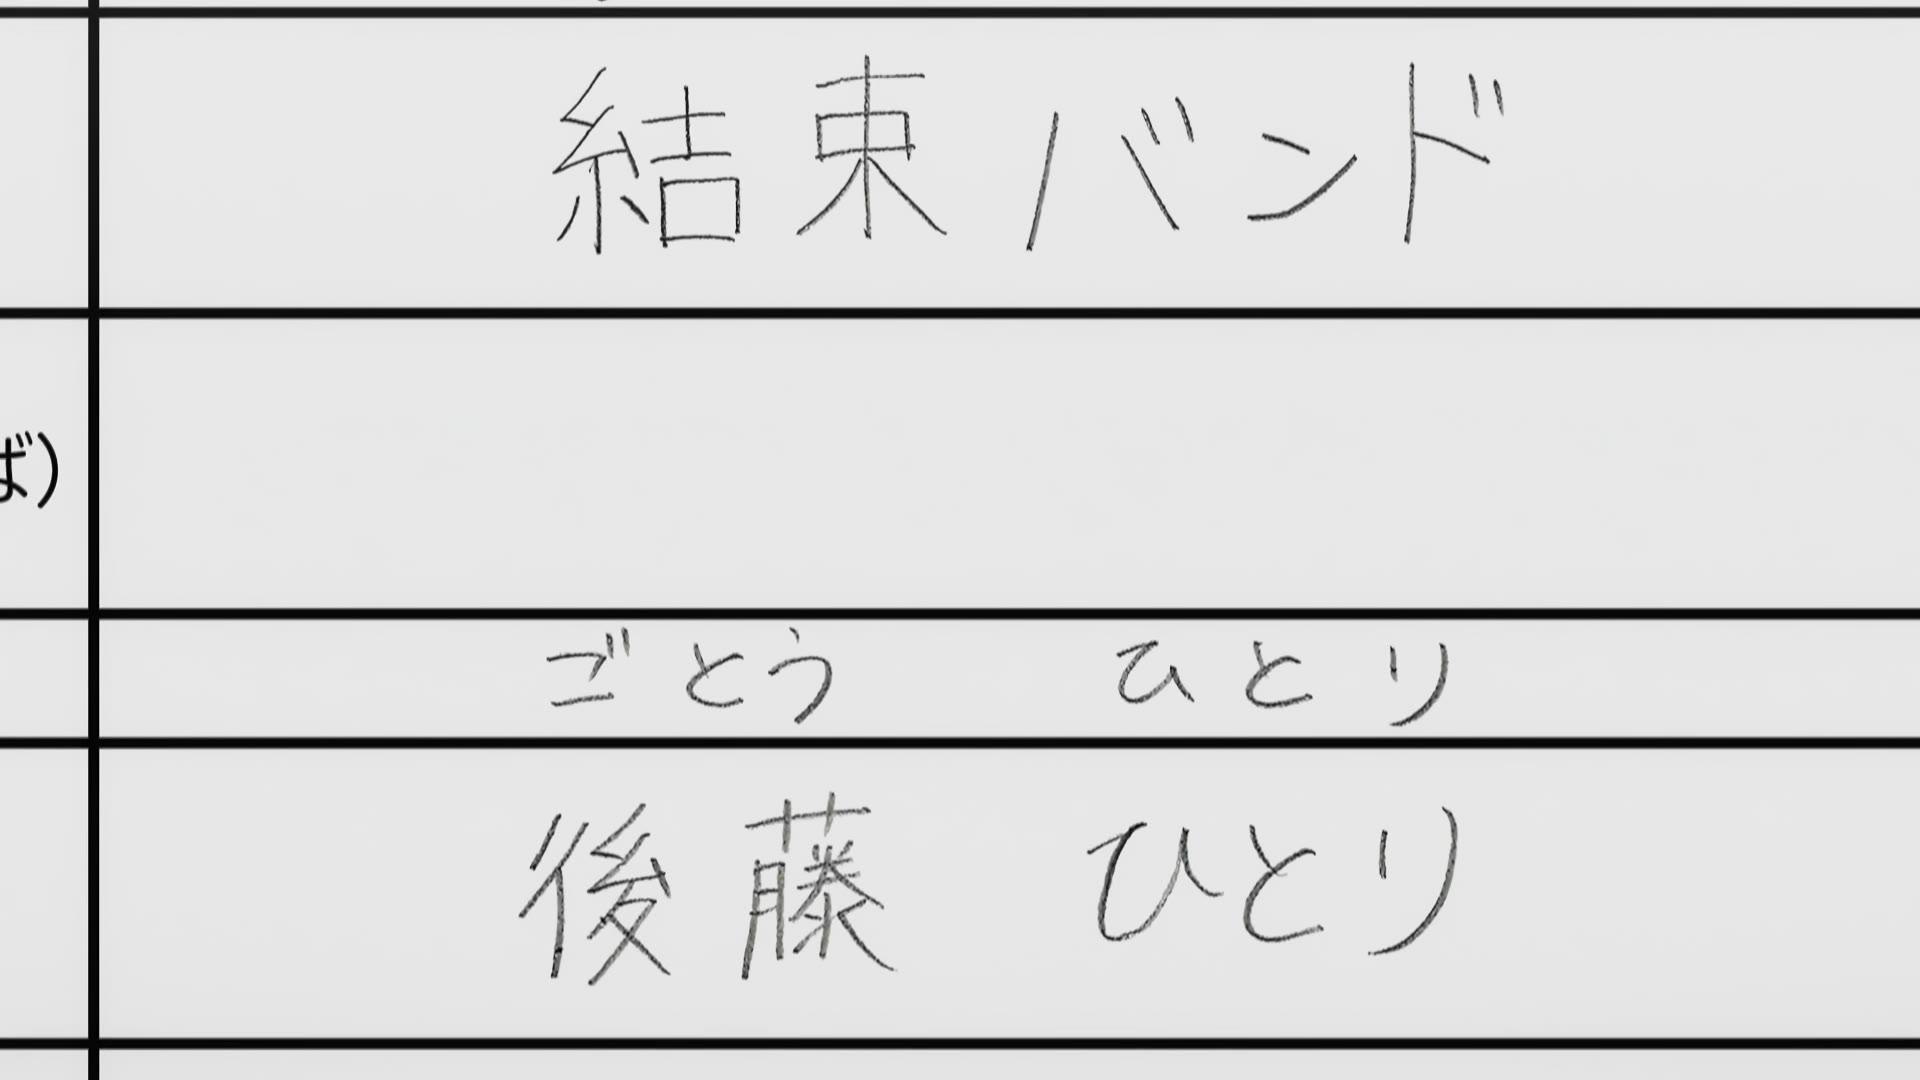 結束バンド
ば)
ごとう ひとり
後藤 ひとり